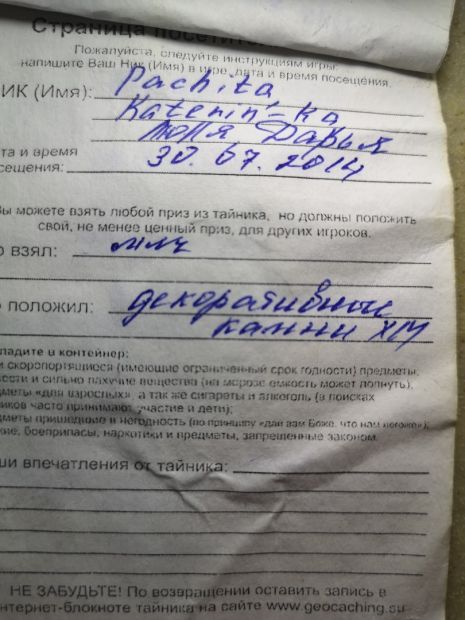 Страница посетит
Пожалуйста, следуйте инструкциям игры:
напишите Ваш Ник (Имя) в игре, дата и время посещения.
ИК (Имя): Pachita
Katenin'-ka
Юля Дарья
та и время
сещения: 30.07.2014
Вы можете взять любой приз из тайника, но должны положить
свой, не менее ценный приз, для других игроков.
о взял: мяч
о положил: декоративные
камни
ладите в контейнер:
и скоропортящиеся (имеющие ограниченный срок годности) предметы;
ести и сильно пахучие вещества (на морозе емкость может лопнуть);
дметы «для взрослых», а так же сигареты и алкоголь (в поисках
иков часто принимают участие и дети);
дметы пришедшие в негодность (по принципу «дай вам Боже, что нам негоже»);
кие, боеприпасы, наркотики и предметы, запрещенные законом.
ши впечатления от тайника:
НЕ ЗАБУДЬТЕ! По возвращении оставить запись в
нтернет-блокноте тайника на сайте www.geocaching.su